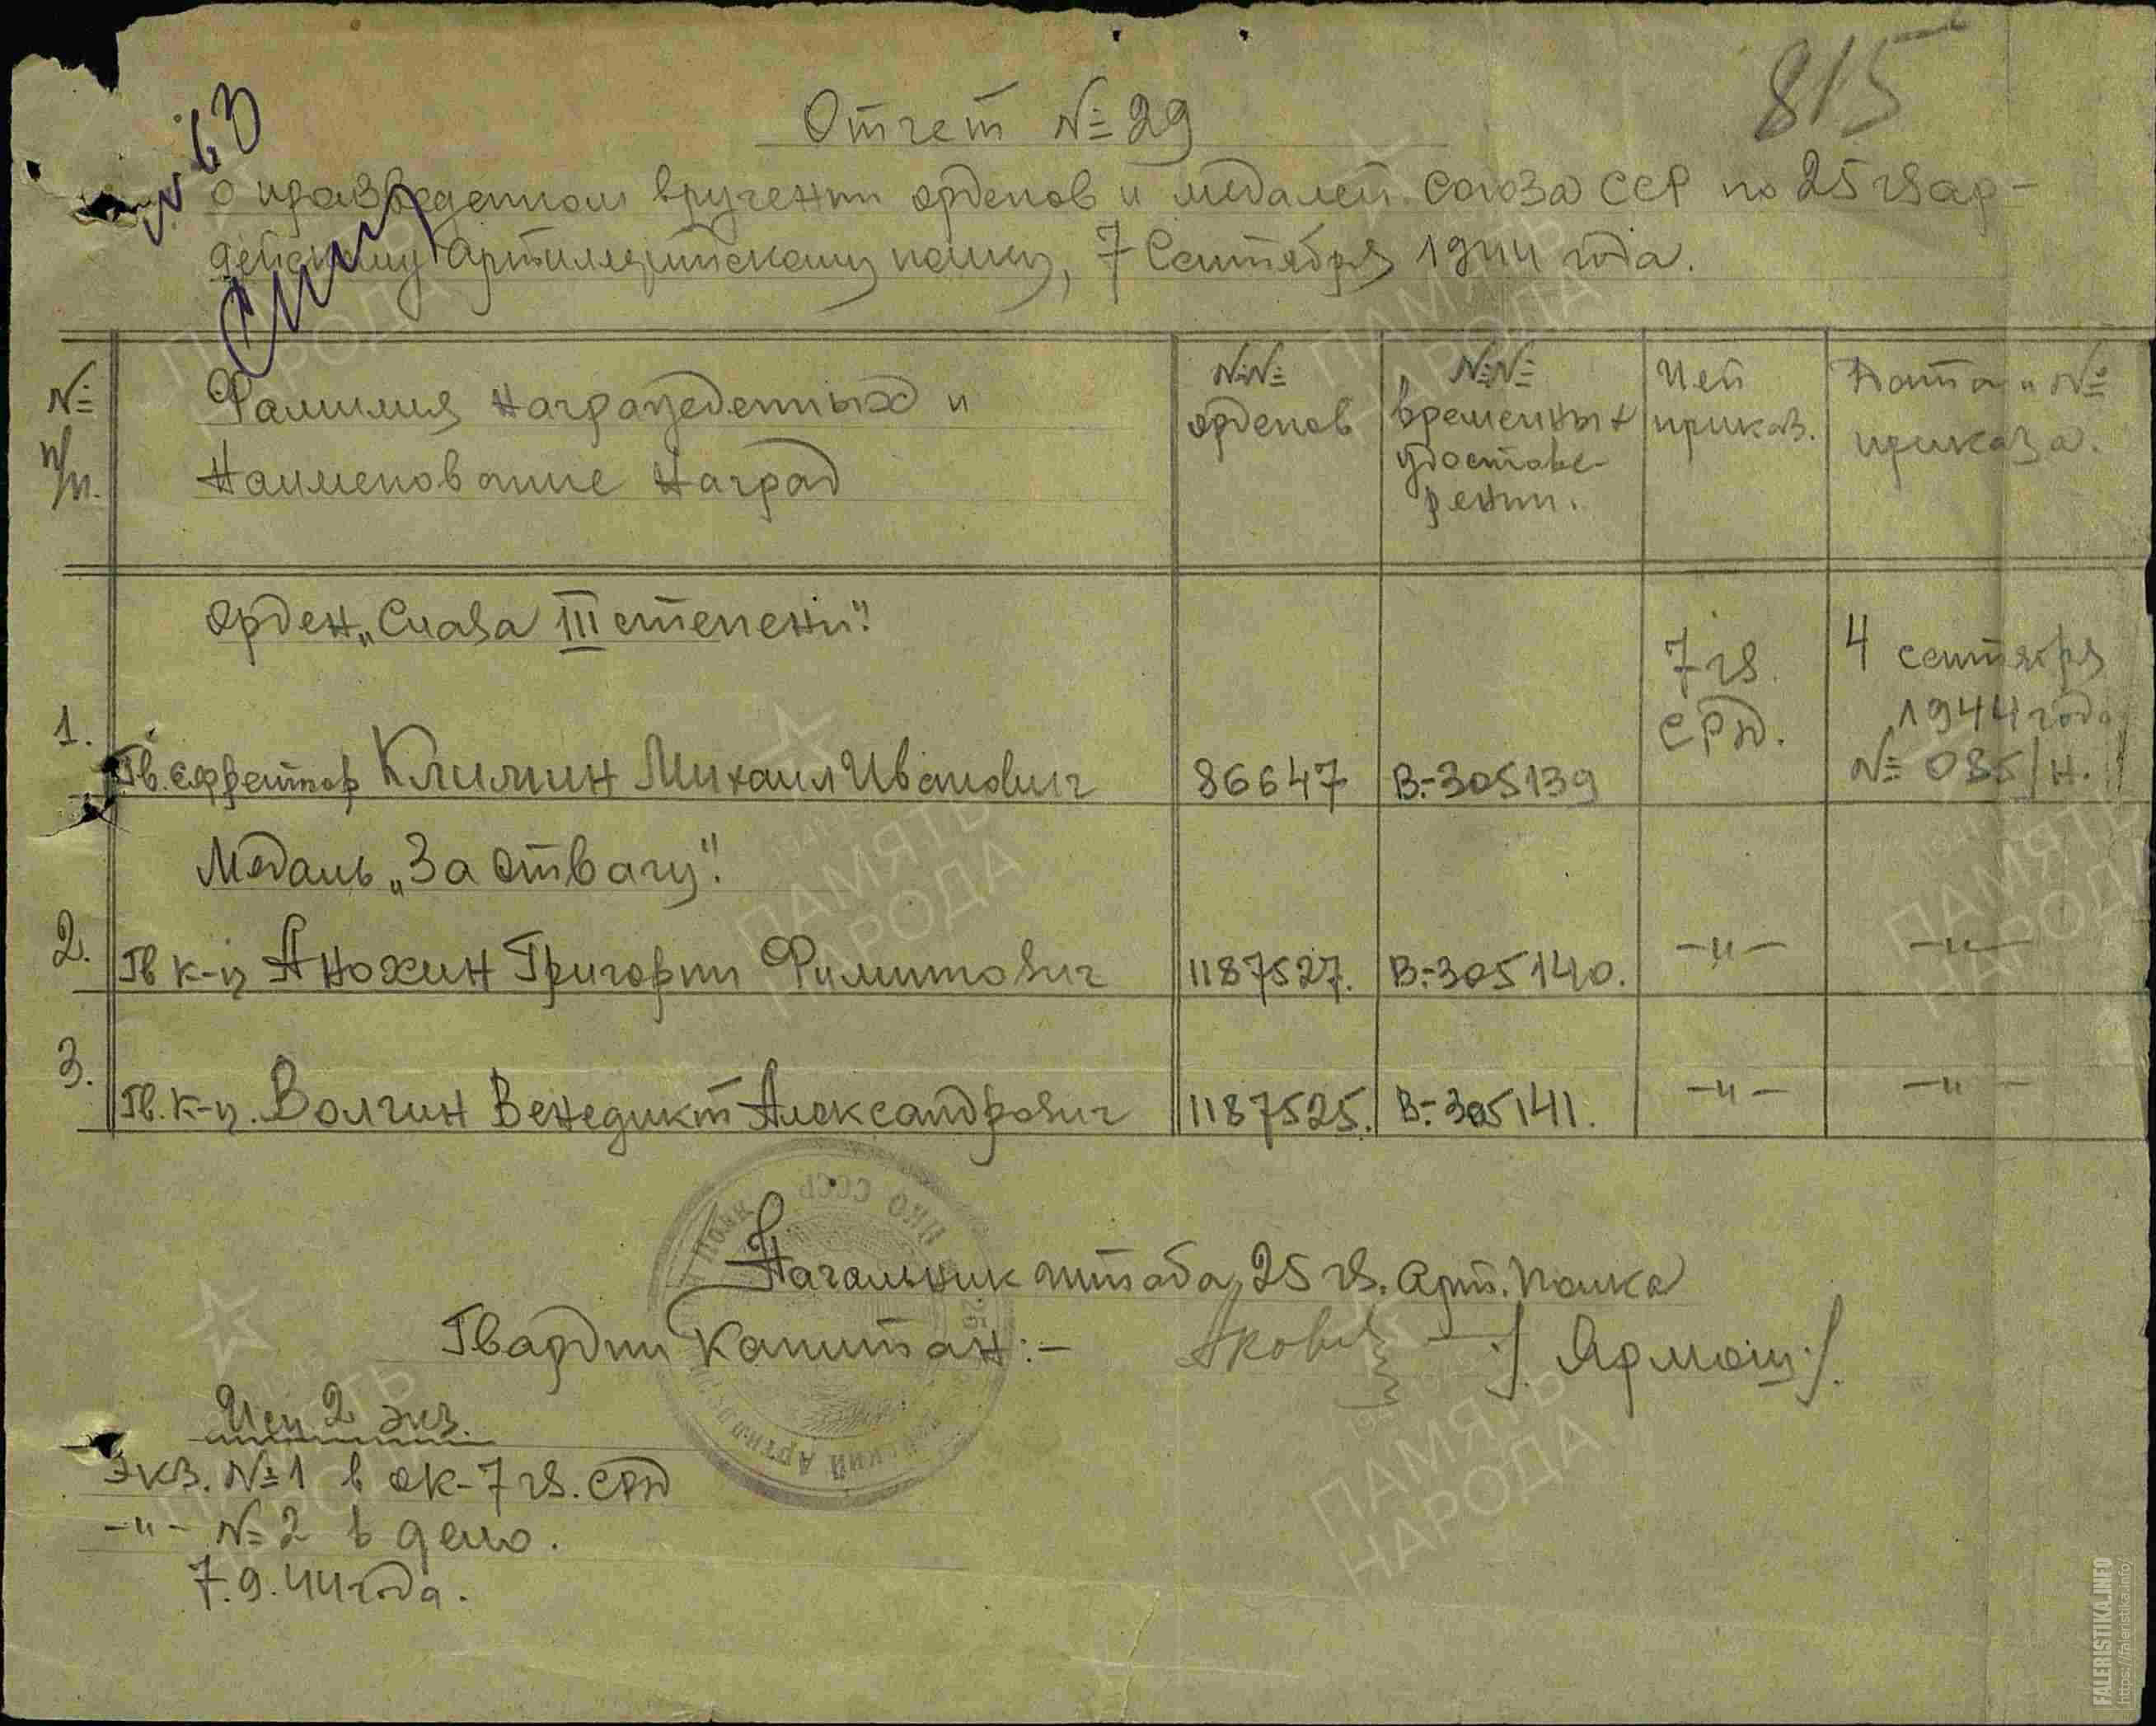 815
№ 63
Отчет № 29
о произведенном вручении орденов и медалей Союза ССР по 25 гвар-
дейскому Артиллерийскому полку, 7 Сентября 1944 года.
№ п/п.
Фамилия Награжденных и
Наименование Наград
№№
орденов
№№
временных
удостове-
рении.
Чей
приказ.
Дата и №
приказа.
Орден „Слава III степени".
1.
Гв. Ефрейтор Климин Михаил Иванович 86647 В-305139
7 гв.
СРД.
4 сентября
1944 года
№ 085/н.
Медаль „За Отвагу".
2. Гв к-ц Анохин Григории Филиппович 1187527. В-305140. -"- -"-
3. Гв. к-ц. Волгин Венедикт Александрович 1187525. В-305141. -"- -"-
Начальник штаба 25 гв. Арт. Полка
Гвардии Капитан:- /. Ярмош./.
НКО СССР
Исп 2 экз.
Экз. №1 в ОК-7 гв. СРД
-"- №2 в дело.
7.9.44 года.
ПАМЯТЬ
НАРОДА
FALERISTIKA.INFO
https://faleristika.info